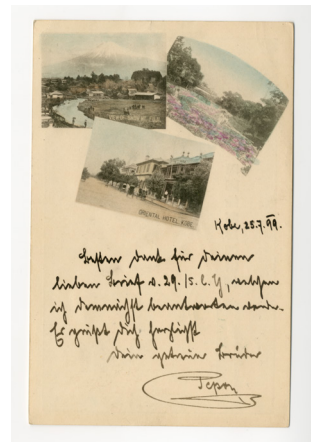 ORIENTAL HOTEL KOBE.
Kobe, 25.7.99.
Besten Dank für deinen
lieben Brief v. 29./5. welchen
ich demnächst beantworten werde.
Es grüßt dich herzlichst
dein getreuer Bruder